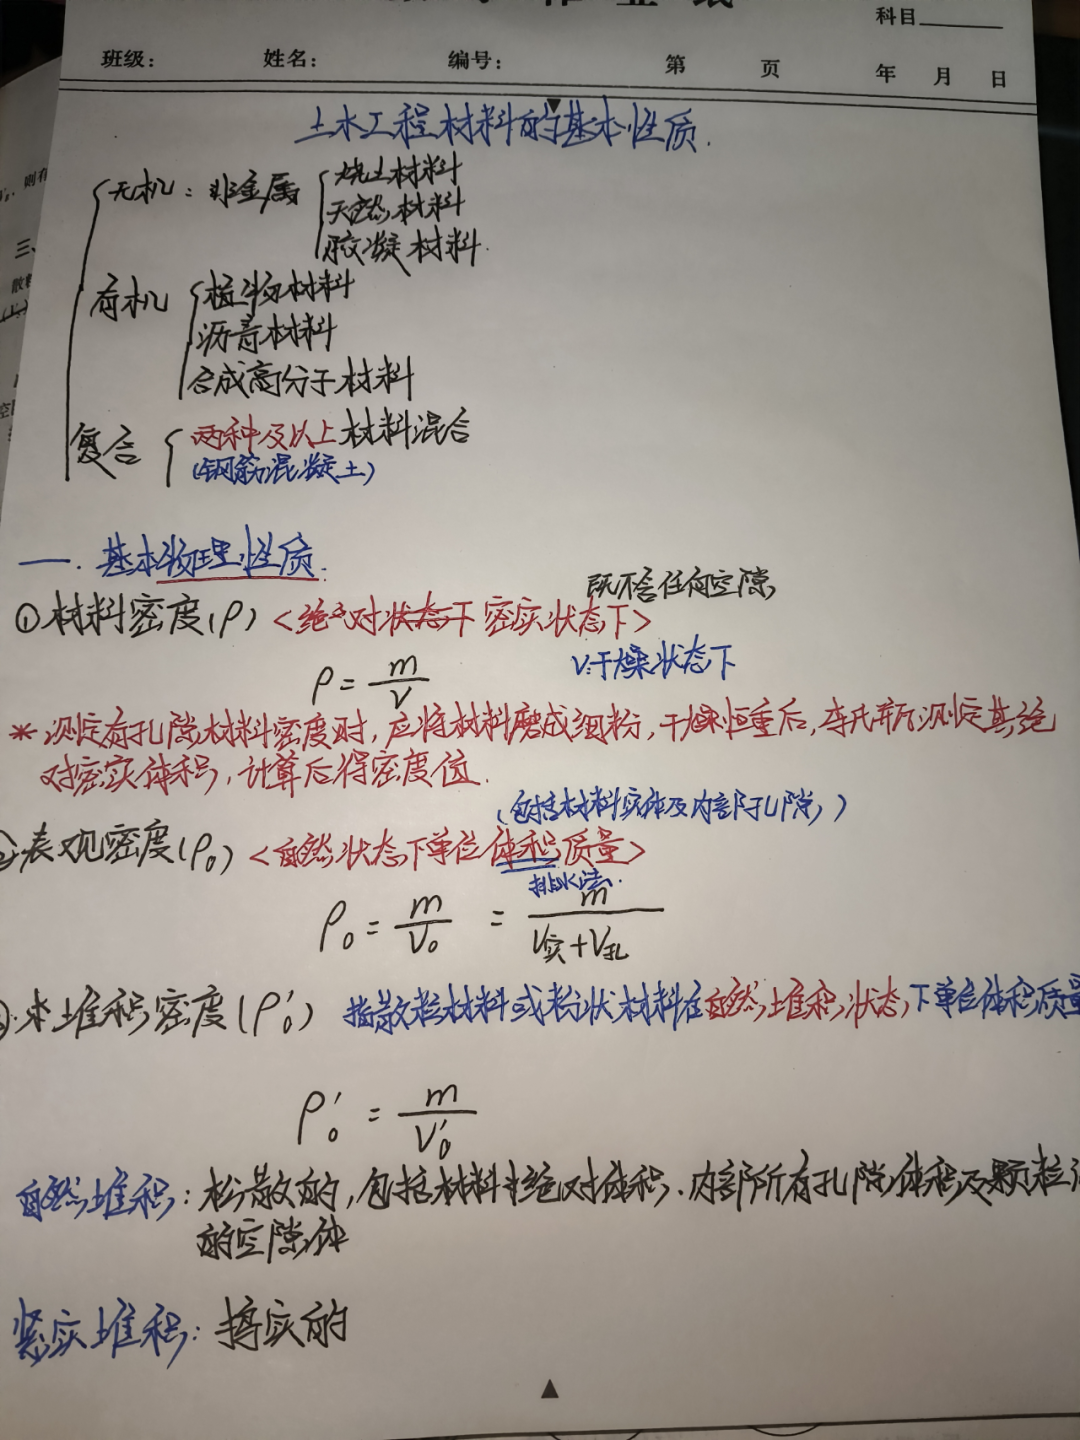 作业纸
科目
班级： 姓名： 编号： 第 页 年 月 日
土木工程材料的基本性质.
无机：非金属 烧土材料
天然材料
胶凝材料.
有机 植物材料
沥青材料
合成高分子材料
复合 两种及以上材料混合
(钢筋混凝土)
一. 基本物理性质.
既不含任何空隙
①材料密度(ρ) <绝对状态下密实状态下>
V:干燥状态下
ρ = m/V
*测定有孔隙材料密度时,应将材料磨成细粉,干燥恒重后,李氏瓶测定其绝
对密实体积,计算后得密度值.
(包括材料实体及内部孔隙,)
表观密度(ρ₀) <自然状态下单位体积质量>
排水法.
ρ₀ = m/V₀ = m/(V实+V孔)
堆积密度(ρ₀′) 指散粒材料或粉状材料在自然堆积状态下单位体积质量
ρ₀′ = m/V₀′
自然堆积：松散的,包括材料绝对体积.内部所有孔隙体积及颗粒
的空隙体
紧实堆积：捣实的